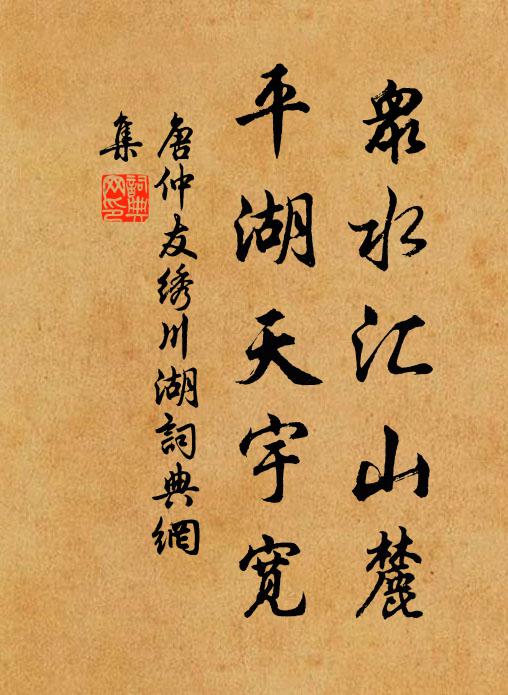 眾水汇山麓
平湖天宇寬
唐仲友绣川湖詞典網
集
詞典
网印